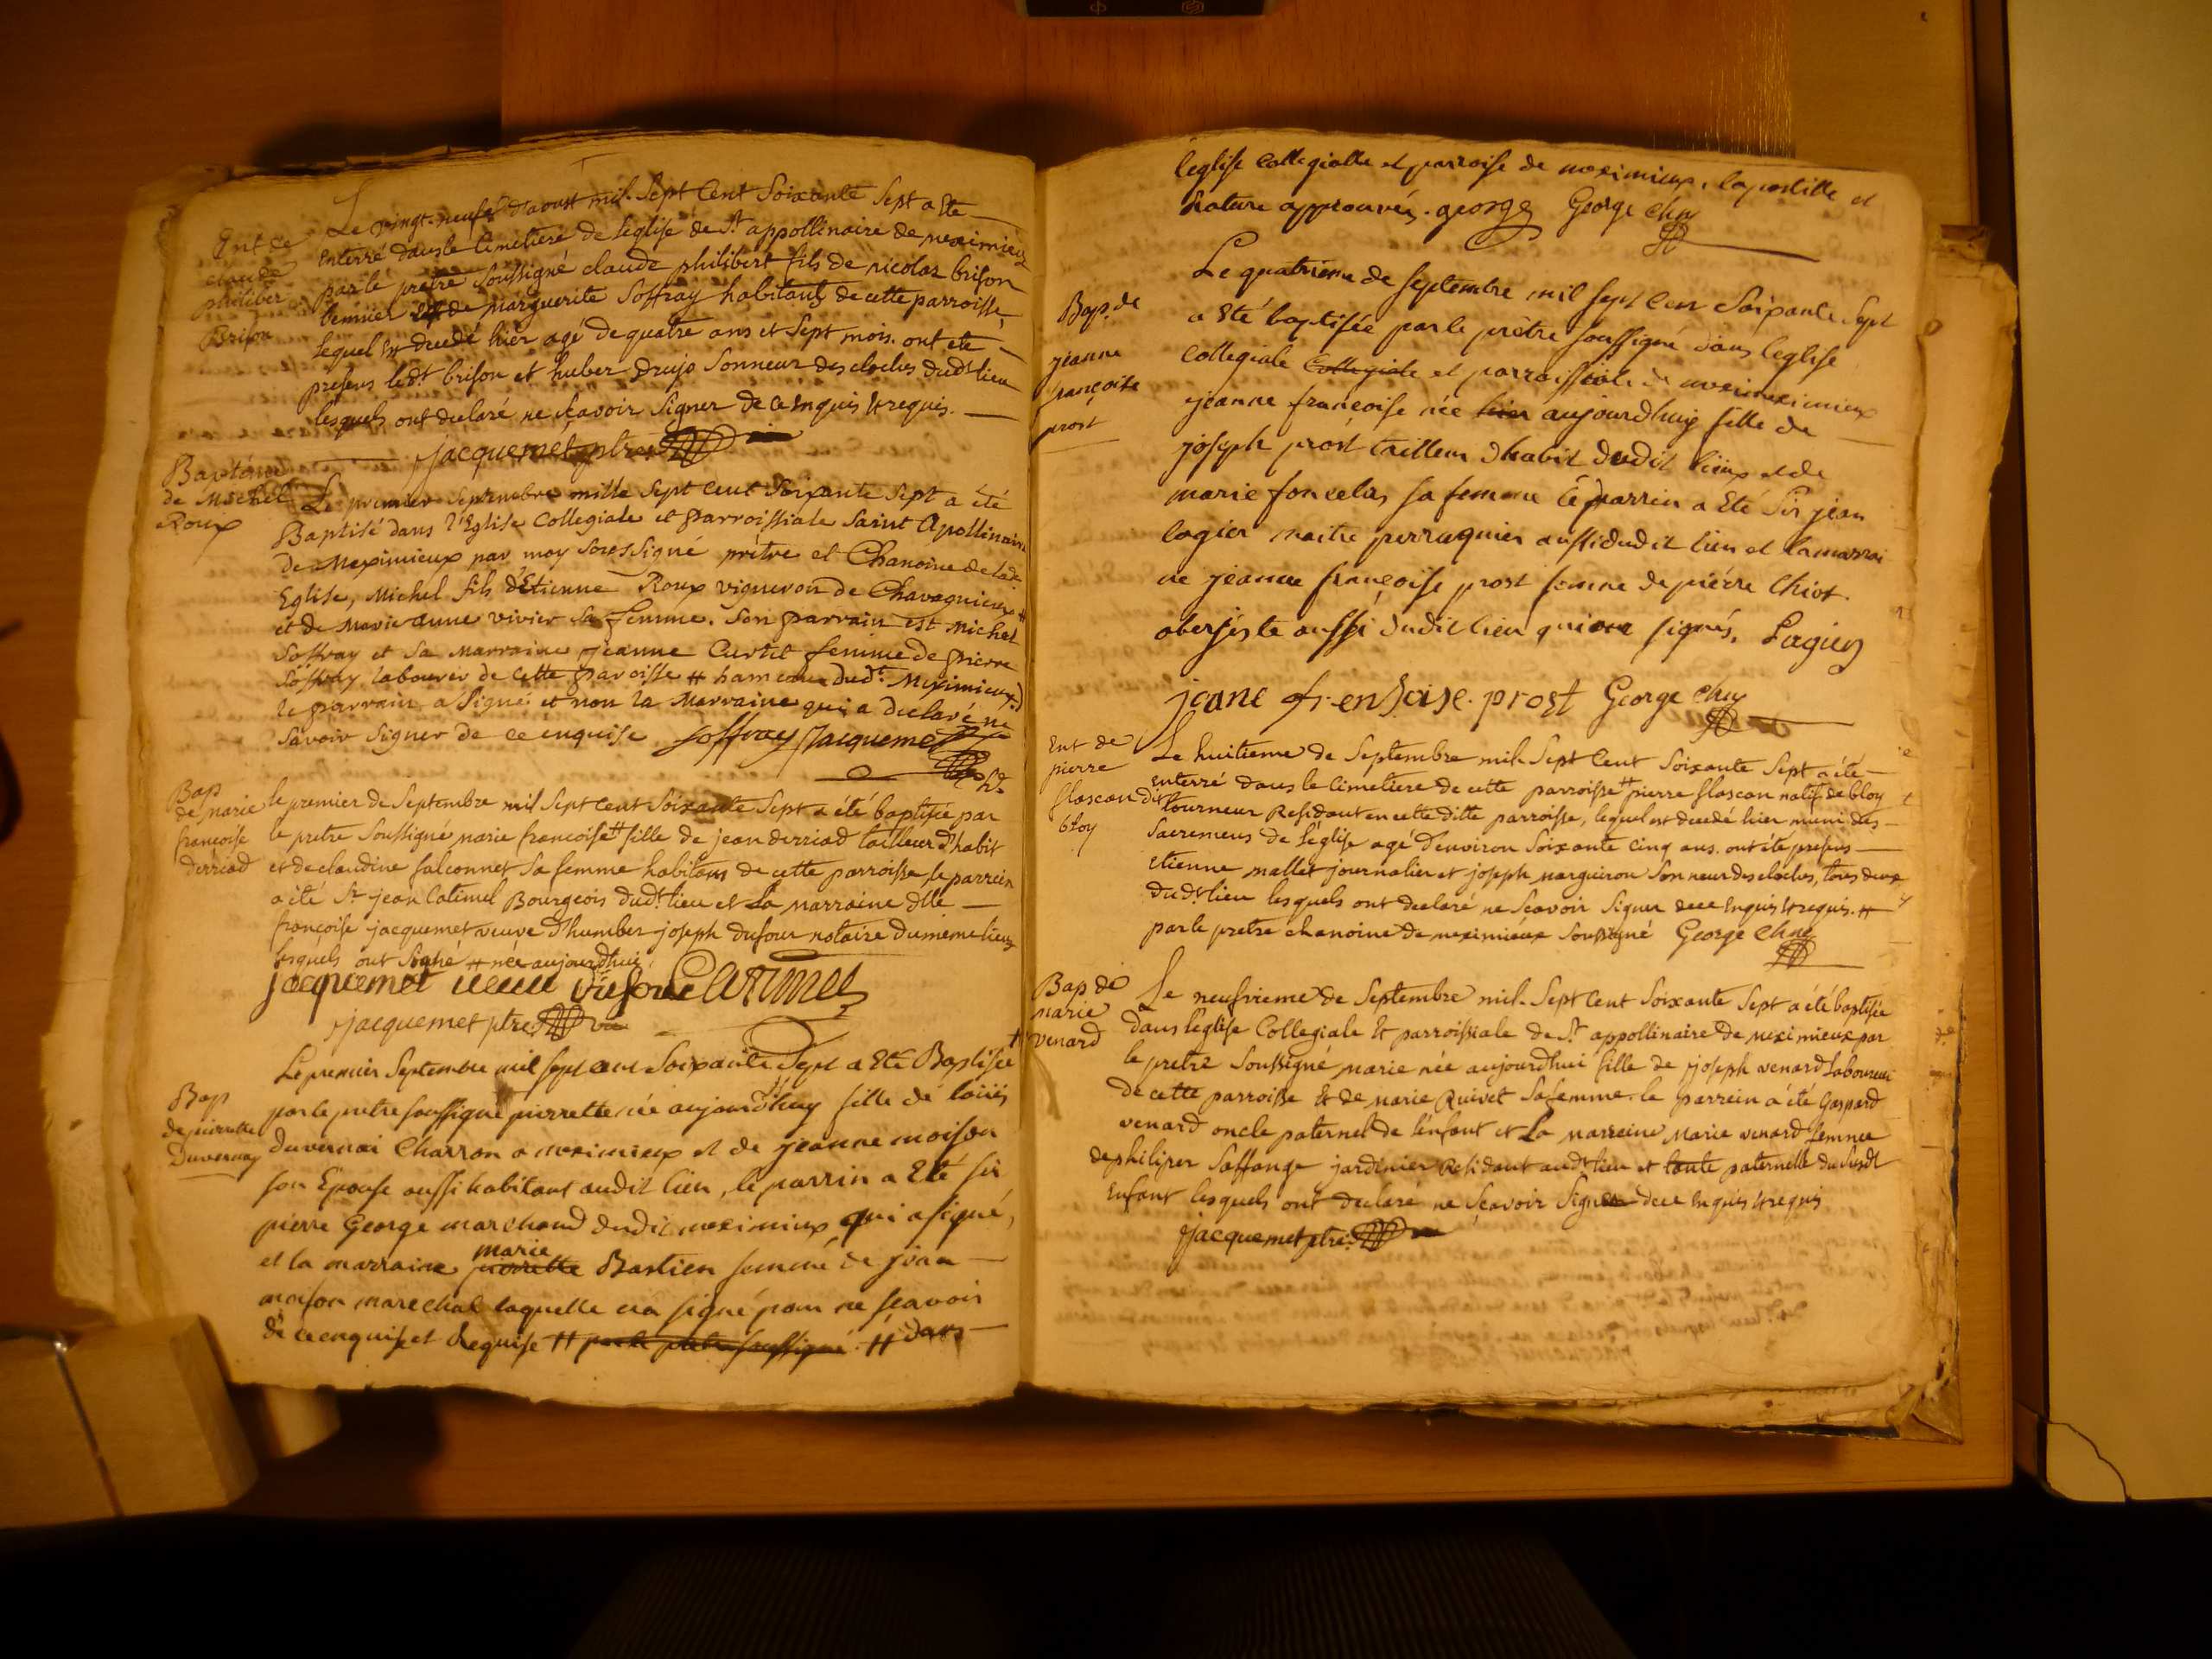 Ent de
claude
philiber
Brison
Le vingt-neufe d'aoust mil Sept Cent Soixante Sept a Ete
Enterré dans le Cimetiere de l'eglise de St appollinaire de meximieux
par le pretre Soussigné claude philibert fils de nicolas brison
et de marguerite Soffray habitants de cette parroisse,
lequel Est decedé hier agé de quatre ans et Sept mois. ont ete
presens led.t brison et huber drujo Sonneur des cloches dud.t lieu
lesquels ont declaré ne scavoir Signer de ce Enquis et requis.
jacquemet ptre
Baptême
de Michel
Roux
Le premier Septembre mille Sept Cent Soixante Sept a été
Baptisé dans l'Eglise Collegiale et Parroissiale Saint Apollinaire
de Meximieux par moy soussigné prêtre et Chanoine de lad.
Eglise, Michel fils d'Etienne Roux vigneron de Chavagnieux #
et de Marie anne vivier sa femme. Son parrain est Michel
Soffray et Sa Marraine jeanne Curtil femme de pierre
Soffray laboureur de cette paroisse # hameau dud.t Meximieux)
le parrain a Signé et non la Marraine qui a declaré ne
savoir Signer de ce enquise soffray Jacquemet
Bap
de marie
francoise
derriad
le premier de Septembre mil Sept Cent Soixante Sept a été baptisée par
le pretre Soussigné marie francoise # fille de jean derriad tailleur d'habit
et de claudine falconnet Sa femme habitans de cette parroisse, le parrein
a été Sr jean Catimel Bourgeois dud.t lieu et La marraine dlle
françoise jacquemet veuve d'humber joseph dufour notaire du meme lieu
lesquels ont Signé # née aujourdhui
jacquemet veuve dufour Catimel
jacquemet ptre
Bap
de pierrette
Duvernay
Le premier Septembre mil sept cent Soixante Sept a Eté Baptisée #
par le pretre soussigné pierrette née aujourdhuy fille de loüis
duvernai Charron a meximieux et de jeanne moison
son Epouse aussi habitant audit lieu, le parrin a Eté sir
pierre George marchand dudit meximieux qui a signé,
marie
et la marraine pierrette Bastien femme de jean
moison marechal laquelle na signé pour ne scavoir
de ce enquise et Requise # par le pretre soussigné # dans
leglise Collegialle et parroise de meximieux, lapostille et
rature approuvés. george George chne
Bap. de
jeanne
françoise
prost
Le quatrieme de Septembre mil sept Cent Soixante Sept
a Eté baptisée par le prètre soussigné dans leglise
Collegiale Collegiale et parroissiale de meximieux
jeanne francoise née hier aujourdhuy fille de
joseph prost tailleur dhabit dudit lieux et de
marie foncelas sa femme le parrein a Eté Sir jean
lagier maitre perruquier aussi dudit lieu et la marrai
ne jeanne françoise prost femme de pièrre Chiot
oberjiste aussi dudit lieu qui ont signés. Lagier
jeane fr-ensoise. prost George chne
Ent de
pierre
flascan dit
bloy
Le huitieme de Septembre mil Sept Cent Soixante Sept a été
enterré dans le Cimetiere de cette parroisse # pierre flascan natif de bloy
tourneur Residant en cette ditte parroisse, lequel est decedé hier muni des
Sacremens de l'église agé d'environ Soixante Cinq ans. ont été presens
Etienne mallet journalier et joseph marguiron Sonneur des cloches, tous deux
dud.t lieu lesquels ont declaré ne Scavoir Signer de ce Enquis et requis. #
par le pretre chanoine de meximieux Soussigné George chne
Bap de
marie
venard
Le neufvieme de Septembre mil Sept Cent Soixante Sept a été baptisée
dans l'eglise Collegiale Et parroissiale de St appollinaire de meximieux par
le pretre Soussigné marie née aujourdhui fille de joseph venard Laboureur
de cette parroisse Et de marie Quivet Sa femme. le parrein a été Gaspard
venard oncle paternel de l'enfant et La marreine Marie venard femme
de philiper Saffange jardinier Residant aud.t lieu et tante paternelle du Susdt
Enfant lesquels ont declaré ne Scavoir Signer de ce Enquis et requis
jacquemet ptre